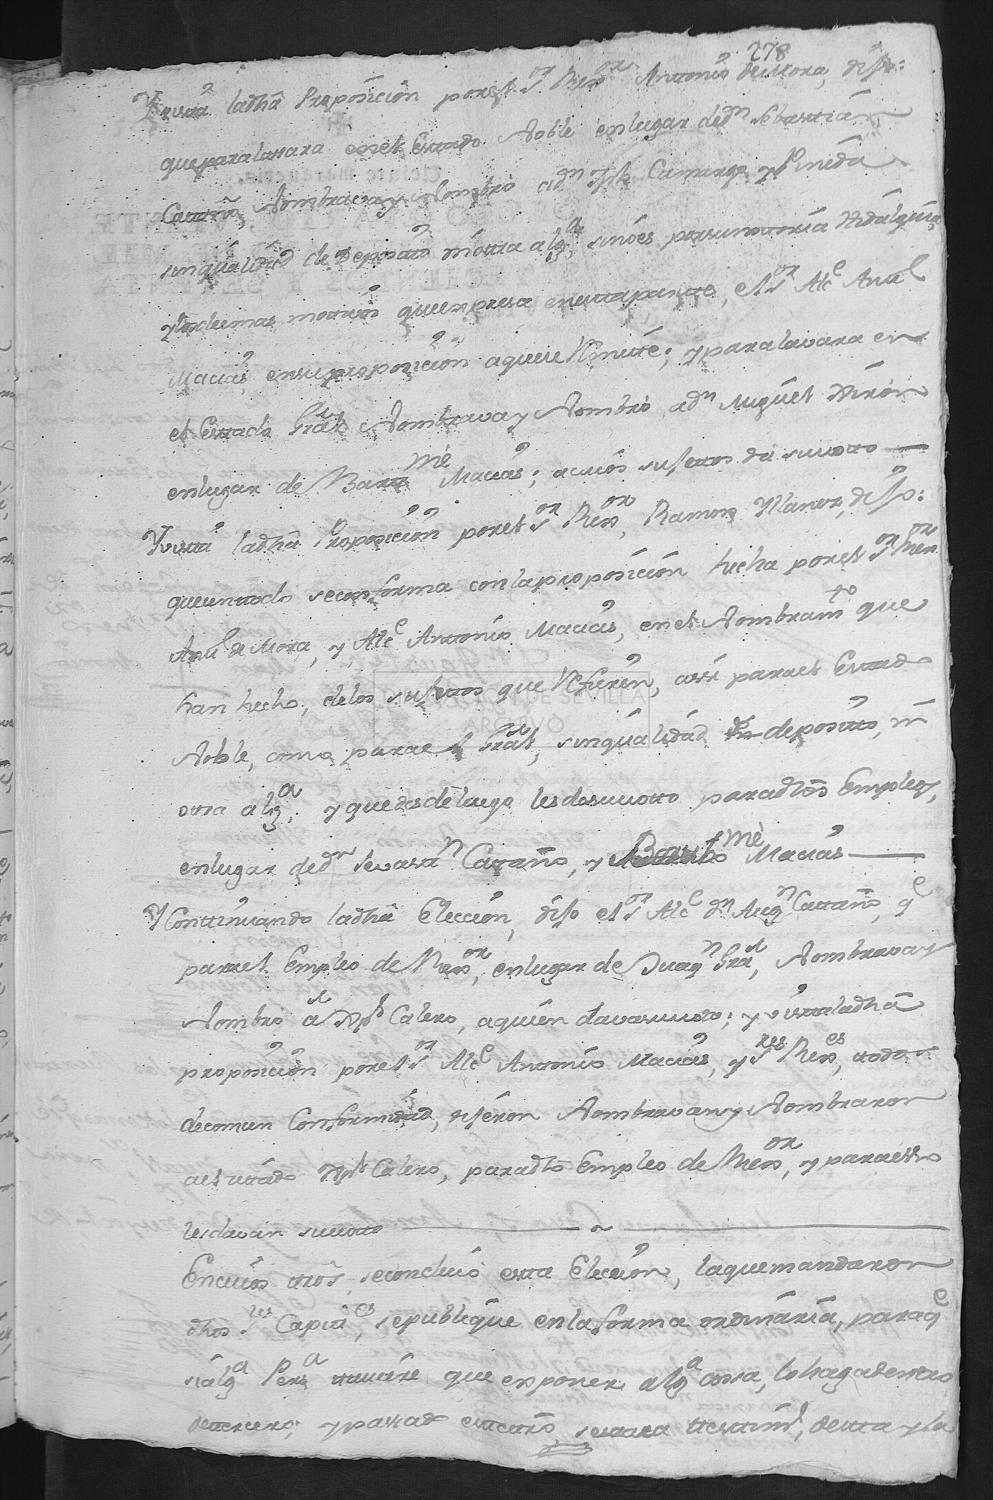 278
Y vista ladhâ Proposicion porel Sor Rexor Antonio de Mora, dijo:
queparalavara enel Estado Noble enlugar dedn Sebastian
Cataño, Nombrava y Nombro adn Jph Camargo y Pineda
sinqualidad de Deposito niotra algª, sinoes porsunotoria Hidalguia,
ylosdemas motivos queexpresa enestaparte, el Sor Alce Antl
Macias, ensuproposicion aquese Remite; yparalavara en
el Estado Gral Nombrava y Nombrò, adn Miguel Giròn
enlugar de Bartmè Macias; acuios sujettos dà suvotto
Yvista ladhâ Proposicion porel Sor Rexor, Ramon Manor, dijo:
queentodo seconforma conlaproposicion hecha porel Sor Rexor
Antl de Mora, y Alce Antonio Macias, enel Nombramto que
han hecho, delos sujettos que Refieren, assi parael Estado
Noble, como parael Gral, sinqualidad de deposito, ni
otra algª; yquedesdeluego lesdasuvotto paradhos Empleos,
enlugar dedn Sevastn Cataño, y Bartmè Macias
YContinuando ladhâ Eleccion, dijo el Sor Alce dn Augn Cataño, qe
parael Empleo de Rexor, enlugar de Juaqn Gral, Nombrava y
Nombro a Jph Calero, aquien davasuvoto; y vistaladhâ
proposicion porel Sor Alce Antonio Macias, y Sres Rexes, todos
decomun Conformidad, dijeron Nombravan y Nombraron
alcitado Jph Calero, paradho Empleo de Rexor, y paraello
ledavan suvotto
Encuios ttros, seconcluió esta Eleccion, laquemandaron
dhos Sres Capitres, sepublique enlaforma ordinaria, paraqe
sialgª Persª tuviere que exponer algª cosa, lohagadentro
detercero; ypasado estettro, sesaca testimo, desta yla
PROVINCIAL DE SEVILLA
ARCHIVO